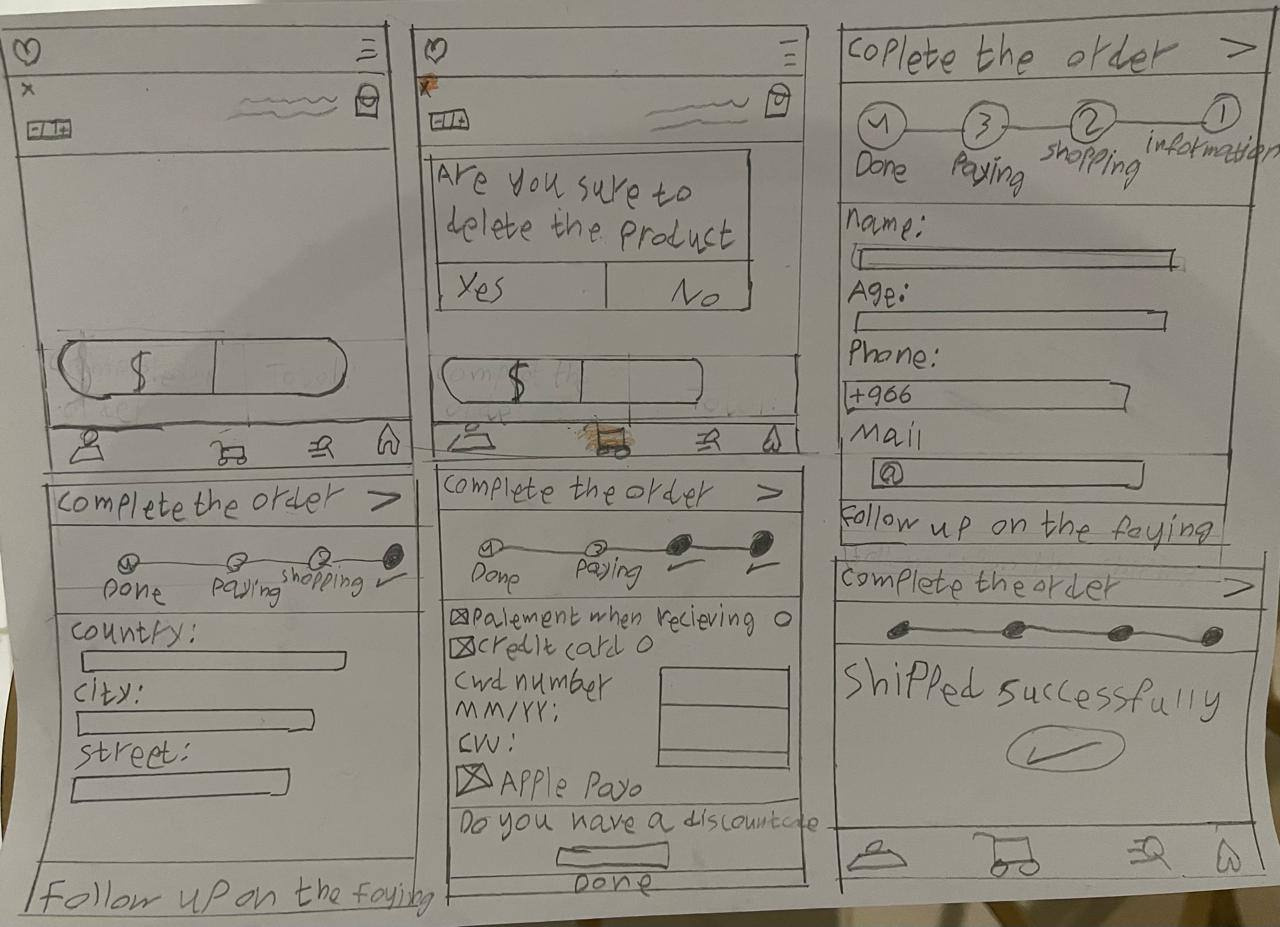 x
- +
$
x
- +
Are you sure to
delete the product
Yes No
$
Coplete the order >
4 3 2 1
Done Paying shopping information
name:
Age:
Phone:
+966
Mail
@
Follow up on the faying
complete the order >
4 3 2
Done Paying shopping
country:
city:
street:
Follow up on the faying
complete the order >
4 3
Done Paying
Paiement when recieving
credit card
Cwd number
MM/YY:
CVV:
Apple Payo
Do you have a discountcde
Done
complete the order >
shipped successfully